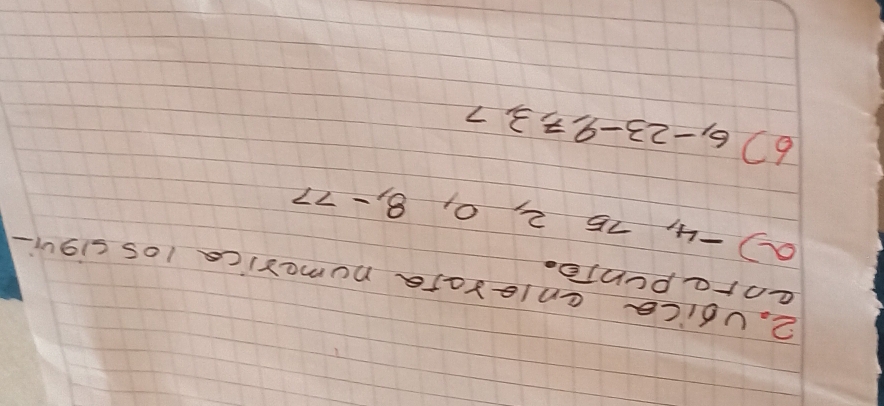 2. Ubica en la rata numerica los sigui-
enre punto.
a) -4, 15 2, 0, 8, -11
b) 6, -23 -9, 7, 3, 1